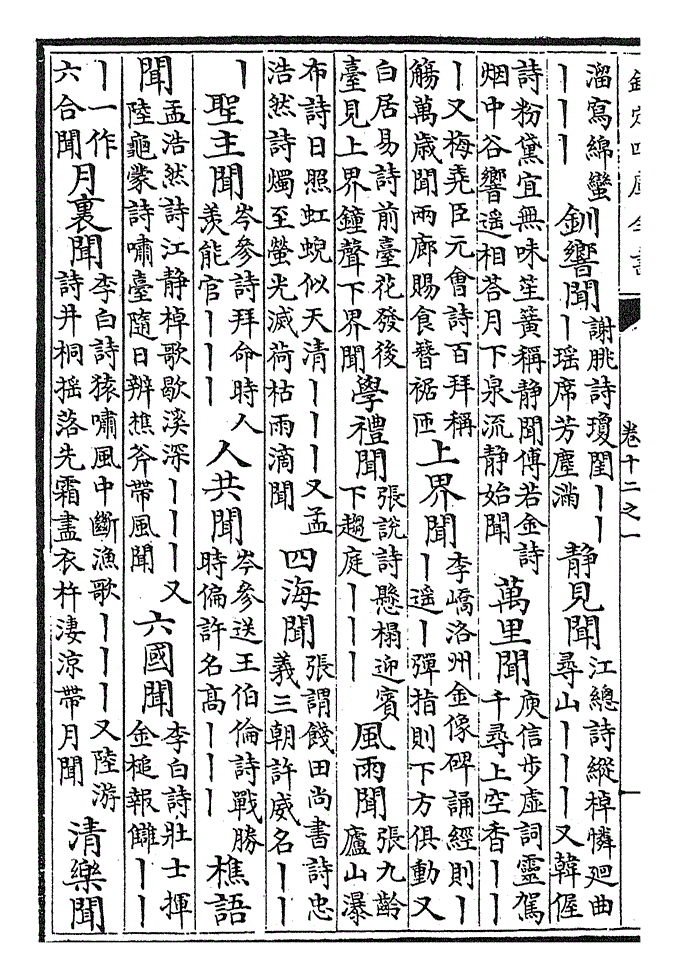 欽定四庫全書
卷十二之一
溜寫綿蠻
丨丨丨
釧響聞
謝朓詩瓊閨丨丨
丨瑶席芳塵滿
静見聞
江總詩縱棹憐廻曲
尋山丨丨丨又韓偓
詩粉黛宜無味笙簧稱静聞傅若金詩
烟中谷響遥相荅月下泉流静始聞
萬里聞
庾信步虚詞靈駕
千尋上空香丨丨
丨又梅堯臣元會詩百拜稱
觴萬歲聞兩廊賜食簪裾匝
上界聞
李嶠洛州金像碑誦經則丨
丨遥丨彈指則下方俱動又
白居易詩前臺花發後
臺見上界鐘聲下界聞
學禮聞
張說詩懸榻迎賓
下趨庭丨丨丨
風雨聞
張九齡
廬山瀑
布詩日照虹蜺似天清丨丨丨又孟
浩然詩燭至螢光滅荷枯雨滴聞
四海聞
張謂餞田尚書詩忠
義三朝許威名丨丨
丨
聖主聞
岑參詩拜命時人
羨能官丨丨丨
人共聞
岑參送王伯倫詩戰勝
時偏許名高丨丨丨
樵語
聞
孟浩然詩江静棹歌歇溪深丨丨丨又
陸龜蒙詩嘯臺隨日辨樵斧帶風聞
六國聞
李白詩壯士揮
金槌報讎丨丨
丨一作
六合聞
月裏聞
李白詩猿嘯風中斷漁歌丨丨丨又陸游
詩井桐揺落先霜盡衣杵淒涼帶月聞
清樂聞